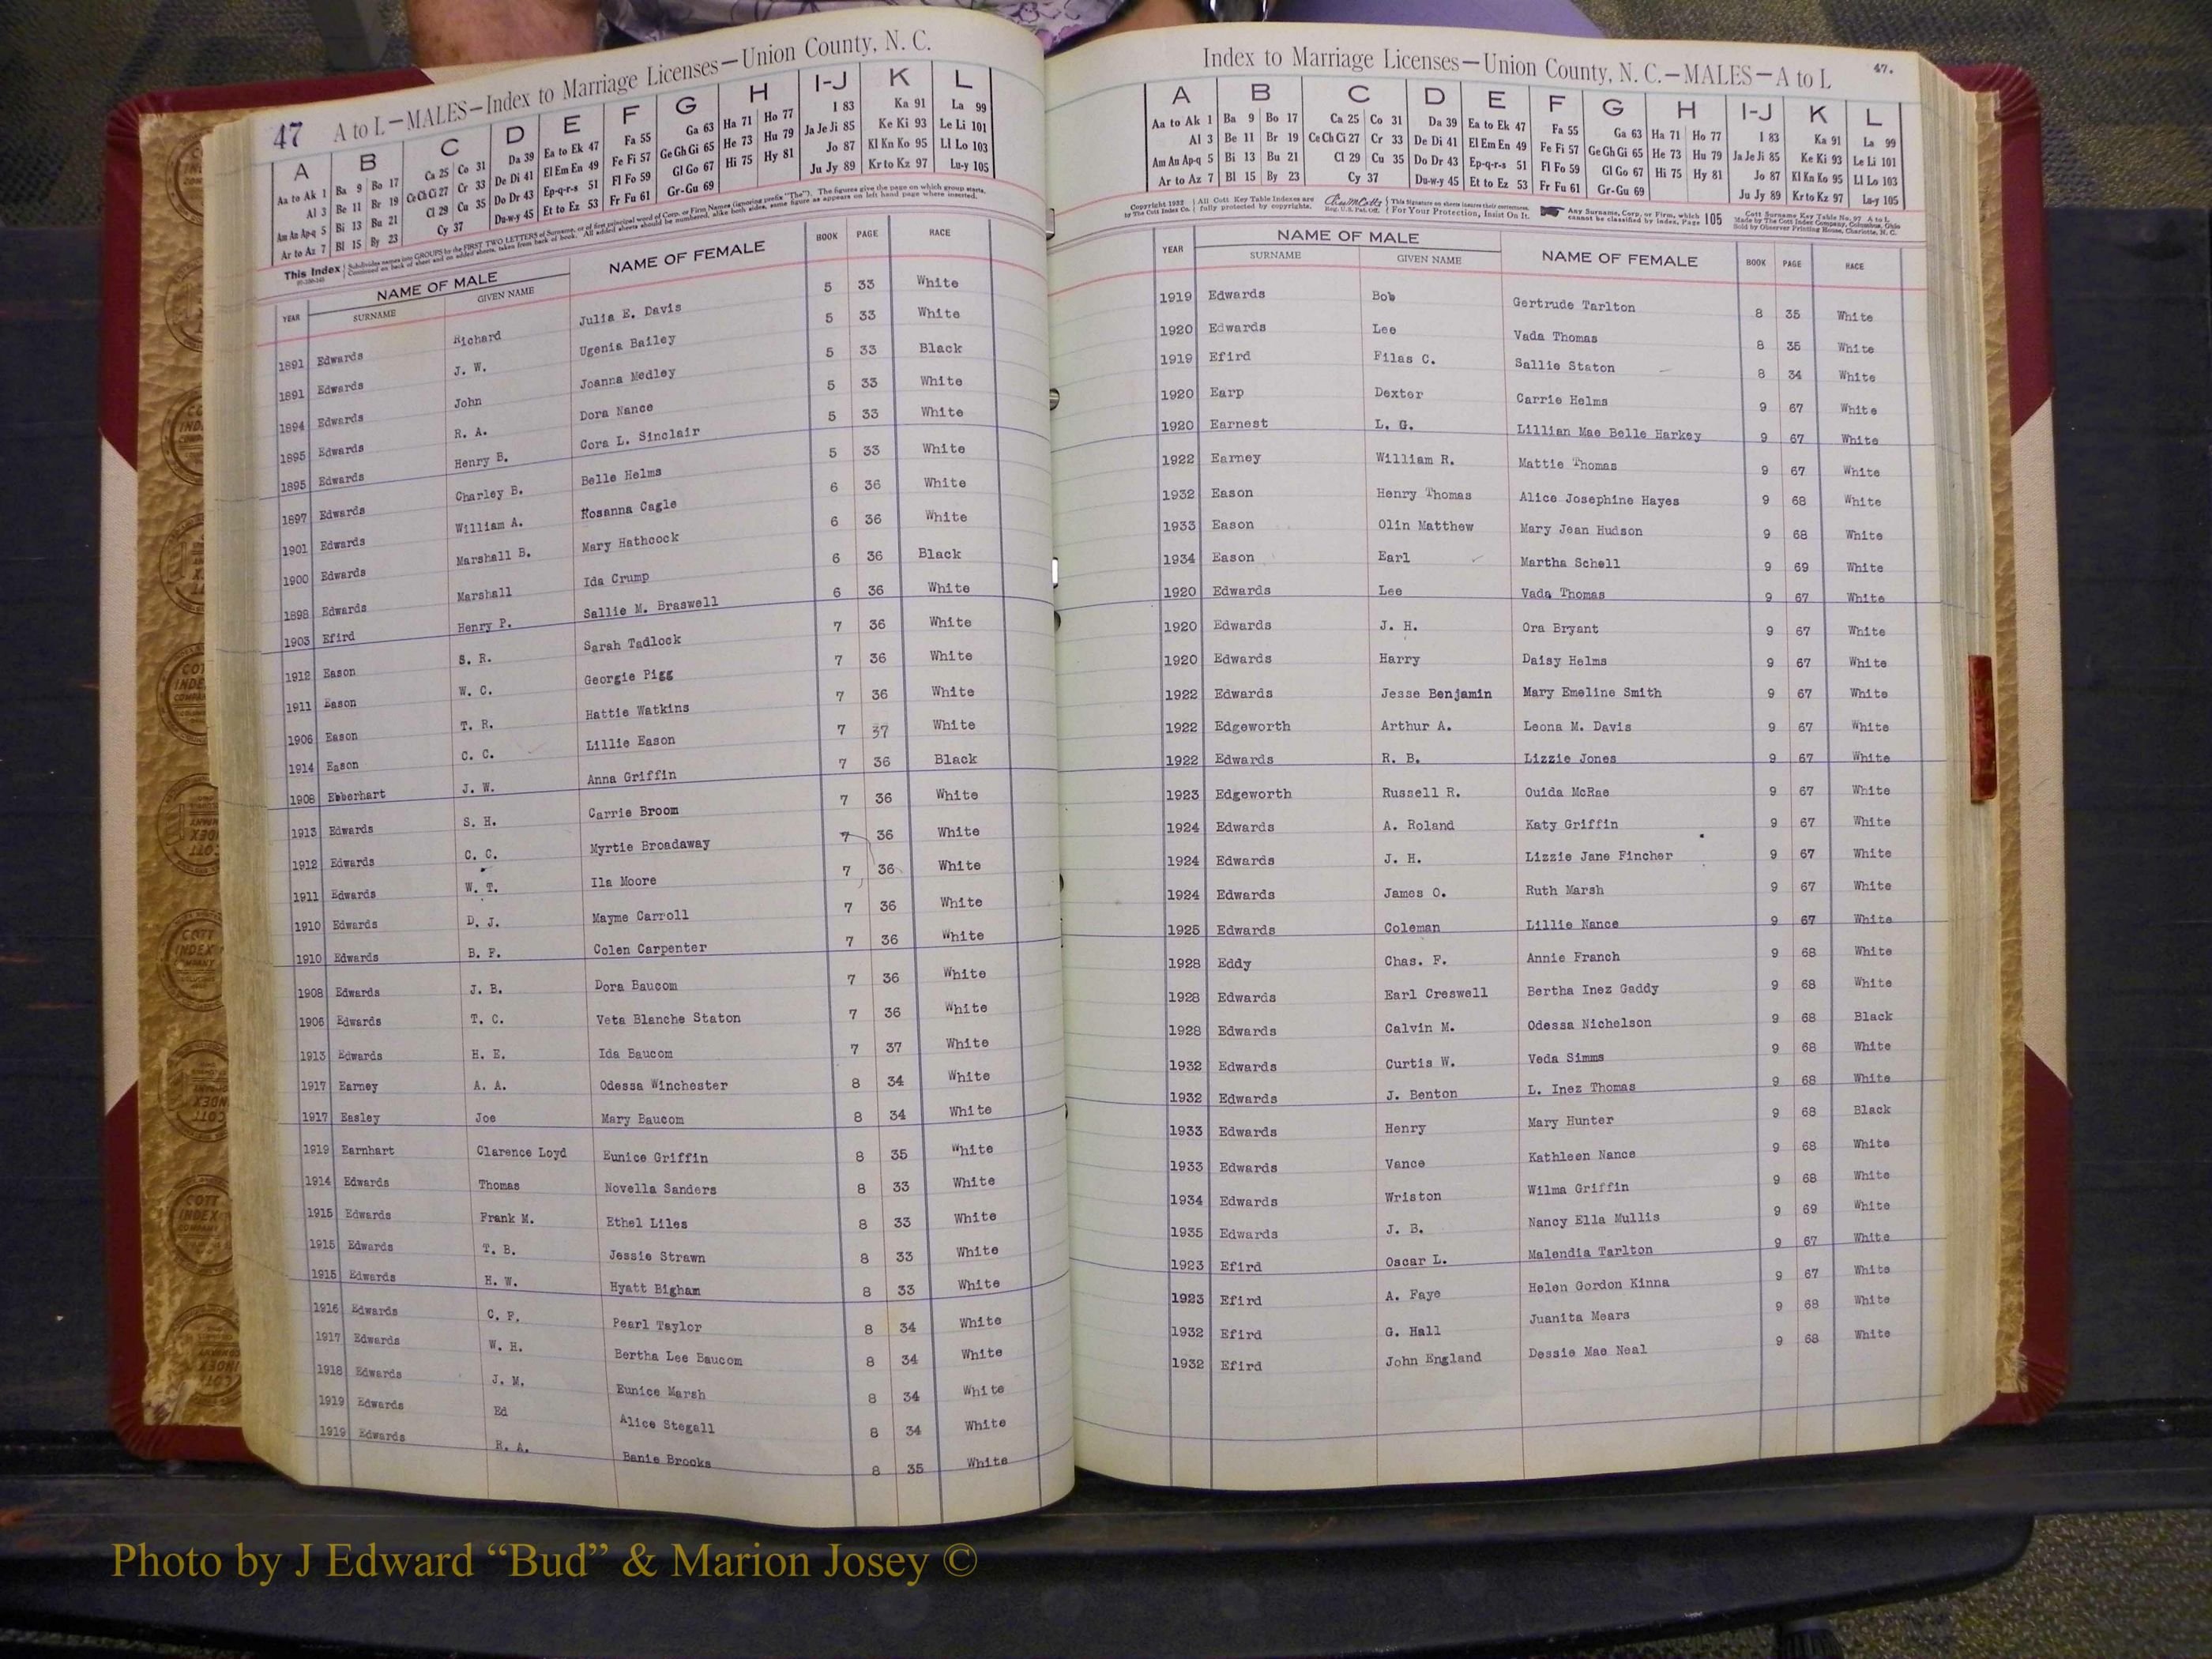 47 A to L—MALES—Index to Marriage Licenses—Union County, N. C.
A B C D E F G H I-J K L
Aa to Ak 1 Ba 9 Bo 17 Ca 25 Co 31 Da 39 Ea to Ek 47 Fa 55 Ga 63 Ha 71 Ho 77 I 83 Ka 91 La 99
Al 3 Be 11 Br 19 Ce Ch Ci 27 Cr 33 De Di 41 El Em En 49 Fe Fi 57 Ge Gh Gi 65 He 73 Hu 79 Ja Je Ji 85 Ke Ki 93 Le Li 101
Am An Ap-q 5 Bi 13 Bu 21 Cl 29 Cu 35 Do Dr 43 Ep-q-r-s 51 Fl Fo 59 Gl Go 67 Hi 75 Hy 81 Jo 87 Kl Kn Ko 95 Ll Lo 103
Ar to Az 7 Bl 15 By 23 Cy 37 Du-w-y 45 Et to Ez 53 Fr Fu 61 Gr-Gu 69 Ju Jy 89 Kr to Kz 97 Lu-y 105
This Index Subdivides names into GROUPS by the FIRST TWO LETTERS of Surname, or of first principal word of Corp. or Firm Names (ignoring prefix "The"). The figures give the page on which group starts.
Continued on back of sheet and on added sheets, taken from back of book. All added sheets should be numbered, alike both sides, same figure as appears on left hand page where inserted.
YEAR NAME OF MALE NAME OF FEMALE BOOK PAGE RACE
SURNAME GIVEN NAME
1891 Edwards Richard Julia E. Davis 5 33 White
1891 Edwards J. W. Ugenia Bailey 5 33 White
1894 Edwards John Joanna Medley 5 33 Black
1895 Edwards R. A. Dora Nance 5 33 White
1895 Edwards Henry B. Cora L. Sinclair 5 33 White
1897 Edwards Charley B. Belle Helms 5 33 White
1901 Edwards William A. Rosanna Cagle 6 36 White
1900 Edwards Marshall B. Mary Hathcock 6 36 White
1898 Edwards Marshall Ida Crump 6 36 Black
1903 Efird Henry P. Sallie M. Braswell 6 36 White
1912 Eason S. R. Sarah Tadlock 7 36 White
1911 Eason W. C. Georgie Pigg 7 36 White
1906 Eason T. R. Hattie Watkins 7 36 White
1914 Eason C. C. Lillie Eason 7 37 White
1908 Ebberhart J. W. Anna Griffin 7 36 Black
1913 Edwards S. H. Carrie Broom 7 36 White
1912 Edwards C. C. Myrtie Broadaway 7 36 White
1911 Edwards W. T. Ila Moore 7 36 White
1910 Edwards D. J. Mayme Carroll 7 36 White
1910 Edwards B. F. Colen Carpenter 7 36 White
1908 Edwards J. B. Dora Baucom 7 36 White
1906 Edwards T. C. Veta Blanche Staton 7 36 White
1913 Edwards H. E. Ida Baucom 7 37 White
1917 Earney A. A. Odessa Winchester 8 34 White
1917 Easley Joe Mary Baucom 8 34 White
1919 Earnhart Clarence Loyd Eunice Griffin 8 35 White
1914 Edwards Thomas Novella Sanders 8 33 White
1915 Edwards Frank M. Ethel Liles 8 33 White
1915 Edwards T. B. Jessie Strawn 8 33 White
1915 Edwards H. W. Hyatt Bigham 8 33 White
1916 Edwards C. F. Pearl Taylor 8 34 White
1917 Edwards W. H. Bertha Lee Baucom 8 34 White
1918 Edwards J. M. Eunice Marsh 8 34 White
1919 Edwards Ed Alice Stegall 8 34 White
1919 Edwards R. A. Banie Brooks 8 35 White
Index to Marriage Licenses—Union County, N. C.—MALES—A to L 47.
A B C D E F G H I-J K L
Aa to Ak 1 Ba 9 Bo 17 Ca 25 Co 31 Da 39 Ea to Ek 47 Fa 55 Ga 63 Ha 71 Ho 77 I 83 Ka 91 La 99
Al 3 Be 11 Br 19 Ce Ch Ci 27 Cr 33 De Di 41 El Em En 49 Fe Fi 57 Ge Gh Gi 65 He 73 Hu 79 Ja Je Ji 85 Ke Ki 93 Le Li 101
Am An Ap-q 5 Bi 13 Bu 21 Cl 29 Cu 35 Do Dr 43 Ep-q-r-s 51 Fl Fo 59 Gl Go 67 Hi 75 Hy 81 Jo 87 Kl Kn Ko 95 Ll Lo 103
Ar to Az 7 Bl 15 By 23 Cy 37 Du-w-y 45 Et to Ez 53 Fr Fu 61 Gr-Gu 69 Ju Jy 89 Kr to Kz 97 Lu-y 105
Copyright 1922 All Cott Key Table Indexes are This Signature on sheets insures their correctness. Any Surname, Corp. or Firm, which 105 Cott Surname Key Table No. 97 A to L
by The Cott Index Co. fully protected by copyrights. Reg. U.S. Pat. Off. For Your Protection, Insist On It. cannot be classified by index, Page Made by The Cott Index Company, Columbus, Ohio
Sold by Observer Printing House, Charlotte, N. C.
YEAR NAME OF MALE NAME OF FEMALE BOOK PAGE RACE
SURNAME GIVEN NAME
1919 Edwards Bob Gertrude Tarlton 8 35 White
1920 Edwards Lee Vada Thomas 8 35 White
1919 Efird Filas C. Sallie Staton 8 34 White
1920 Earp Dexter Carrie Helms 9 67 White
1920 Earnest L. G. Lillian Mae Belle Harkey 9 67 White
1922 Earney William R. Mattie Thomas 9 67 White
1932 Eason Henry Thomas Alice Josephine Hayes 9 68 White
1933 Eason Olin Matthew Mary Jean Hudson 9 68 White
1934 Eason Earl Martha Schell 9 69 White
1920 Edwards Lee Vada Thomas 9 67 White
1920 Edwards J. H. Ora Bryant 9 67 White
1920 Edwards Harry Daisy Helms 9 67 White
1922 Edwards Jesse Benjamin Mary Emeline Smith 9 67 White
1922 Edgeworth Arthur A. Leona M. Davis 9 67 White
1922 Edwards R. B. Lizzie Jones 9 67 White
1923 Edgeworth Russell R. Ouida McRae 9 67 White
1924 Edwards A. Roland Katy Griffin 9 67 White
1924 Edwards J. H. Lizzie Jane Fincher 9 67 White
1924 Edwards James O. Ruth Marsh 9 67 White
1925 Edwards Coleman Lillie Nance 9 67 White
1928 Eddy Chas. F. Annie Franch 9 68 White
1928 Edwards Earl Creswell Bertha Inez Gaddy 9 68 White
1928 Edwards Calvin M. Odessa Nicholson 9 68 Black
1932 Edwards Curtis W. Veda Simms 9 68 White
1932 Edwards J. Benton L. Inez Thomas 9 68 White
1933 Edwards Henry Mary Hunter 9 68 Black
1933 Edwards Vance Kathleen Nance 9 68 White
1934 Edwards Wriston Wilma Griffin 9 68 White
1935 Edwards J. B. Nancy Ella Mullis 9 69 White
1923 Efird Oscar L. Malendia Tarlton 9 67 White
1923 Efird A. Faye Helen Gordon Kinna 9 67 White
1932 Efird G. Hall Juanita Mears 9 68 White
1932 Efird John England Dessie Mae Neal 9 68 White
Photo by J Edward “Bud” & Marion Josey ©